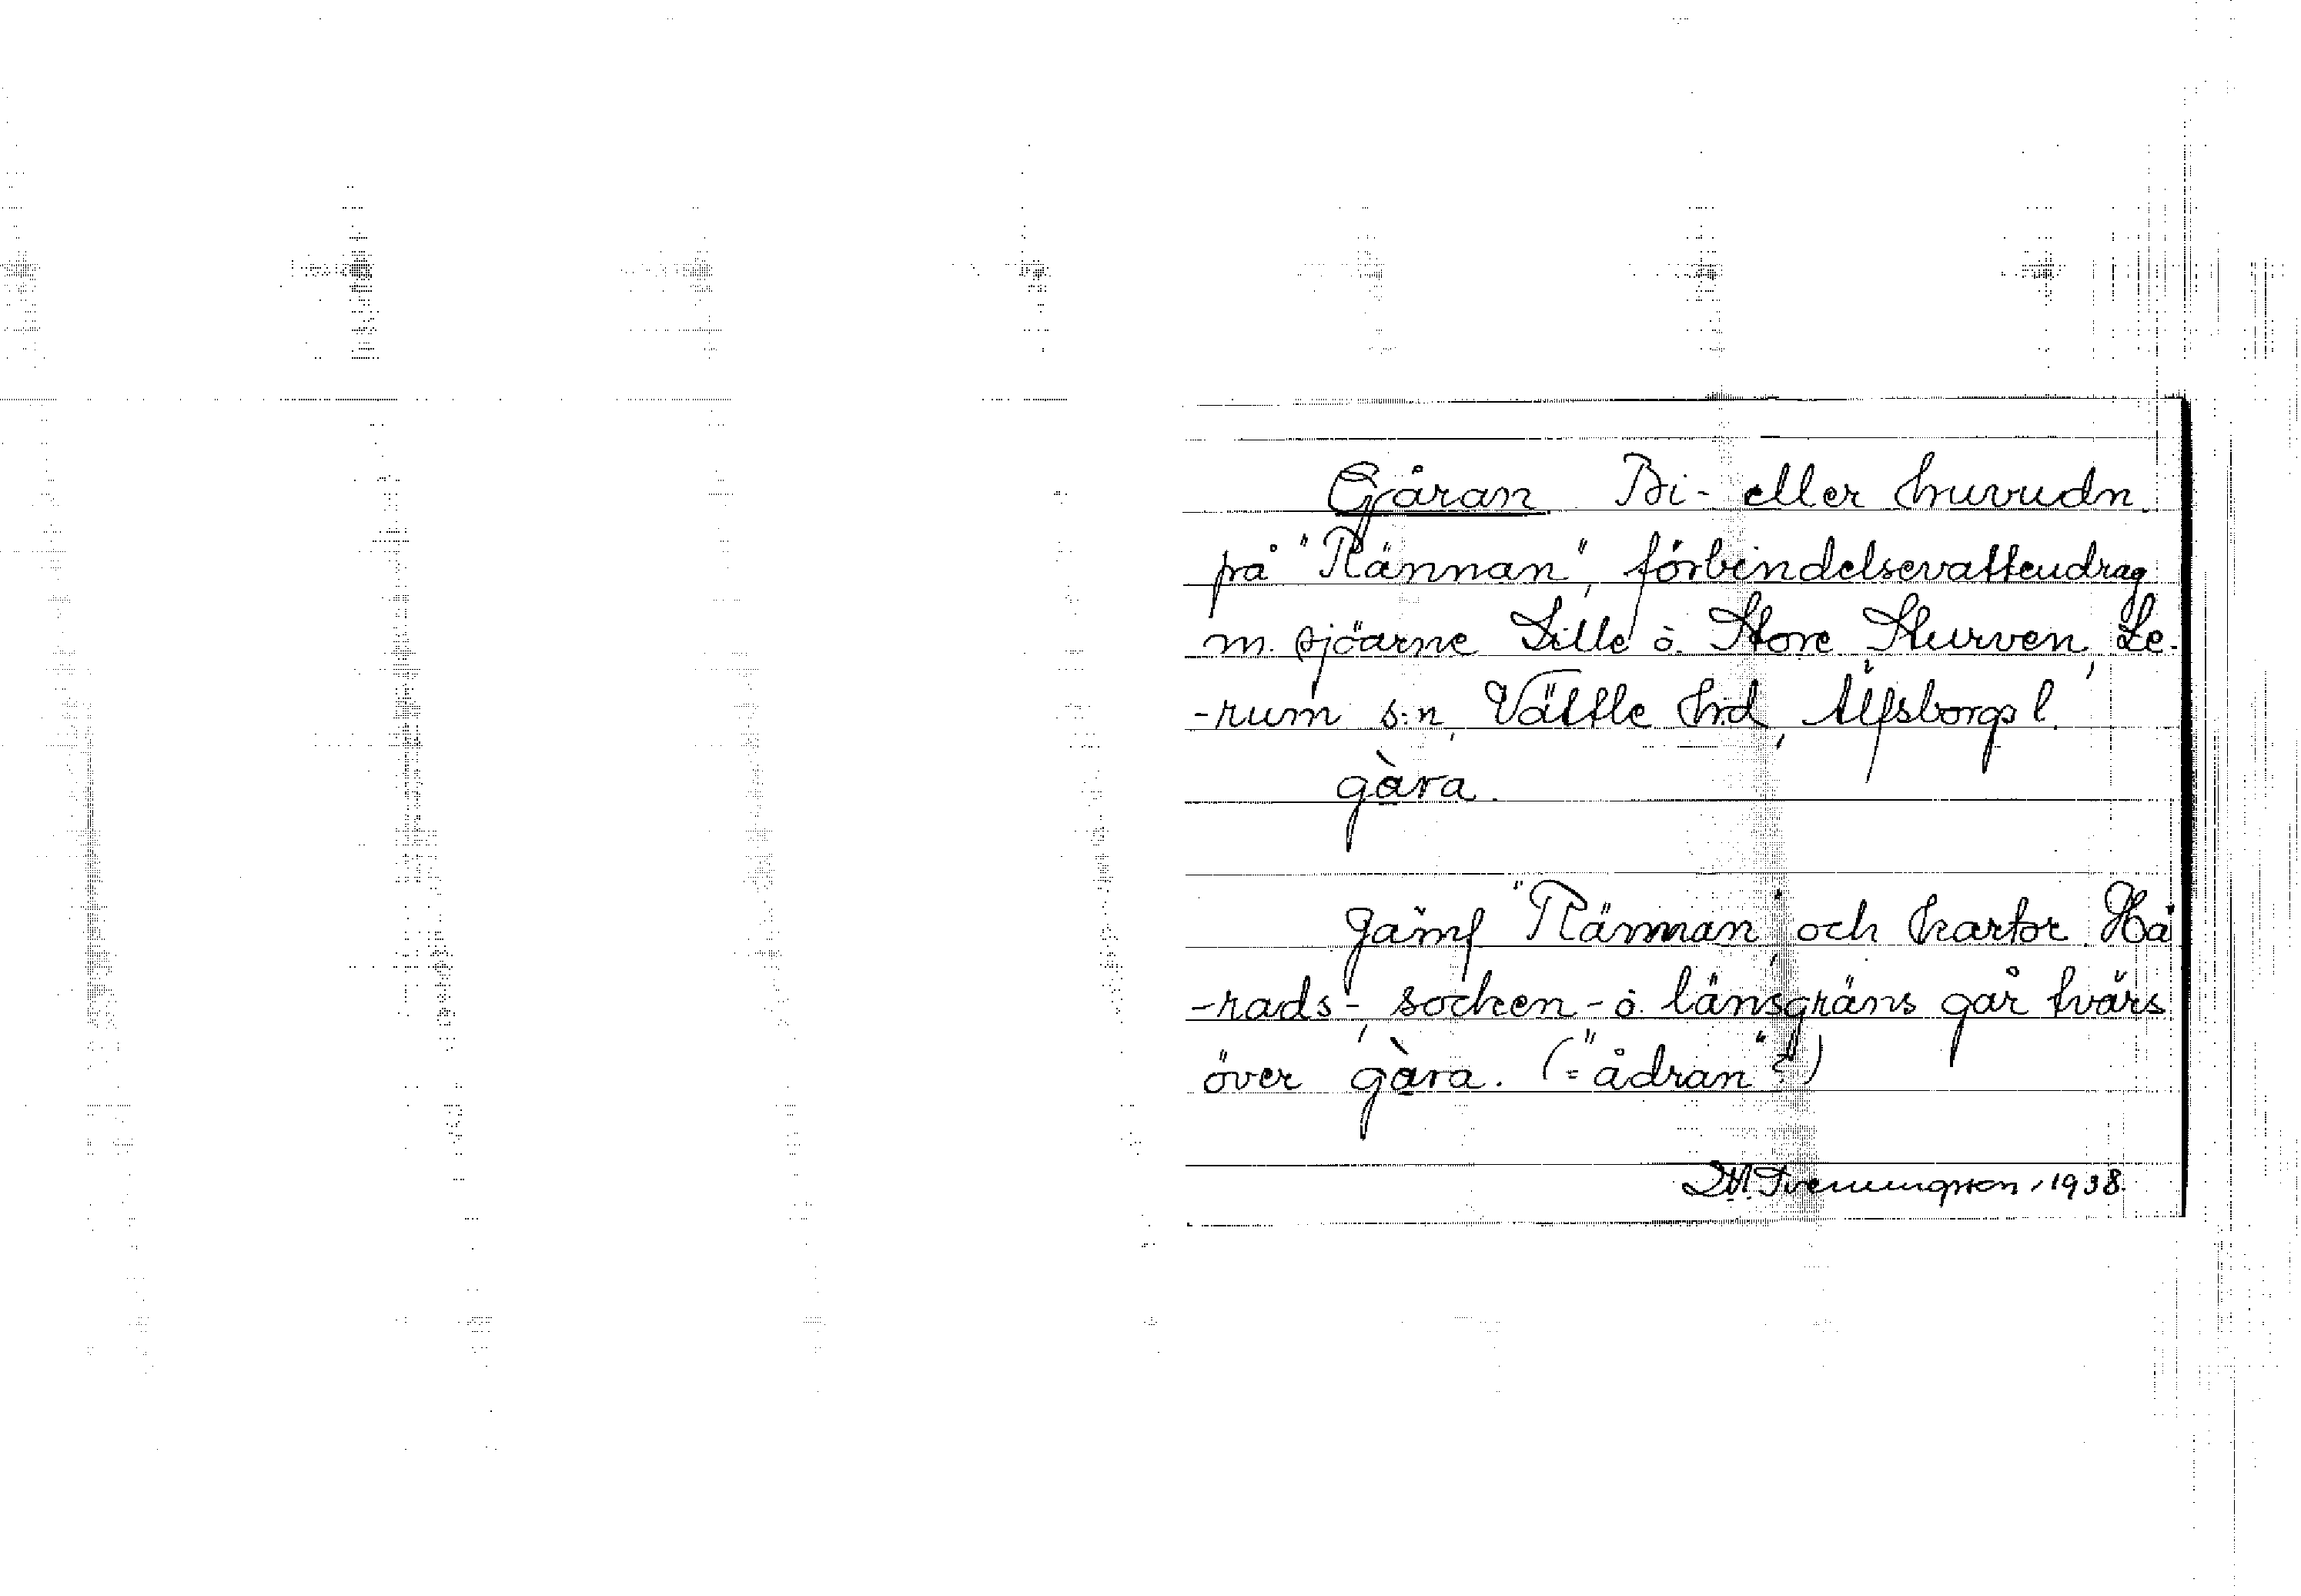 Gåran. Bi- eller huvudn.
på "Rännan", förbindelsevattendrag
m. sjöarne Lille o. Store Skurven, Le-
-rum s:n, Vättle hd, Älfsborgs l.
gàra.
Jämf "Rännan", och kartor. Hä-
-rads-, socken- o. länsgräns går tvärs
över gàra. (="ådran"?)
Sveningsson, 1938.